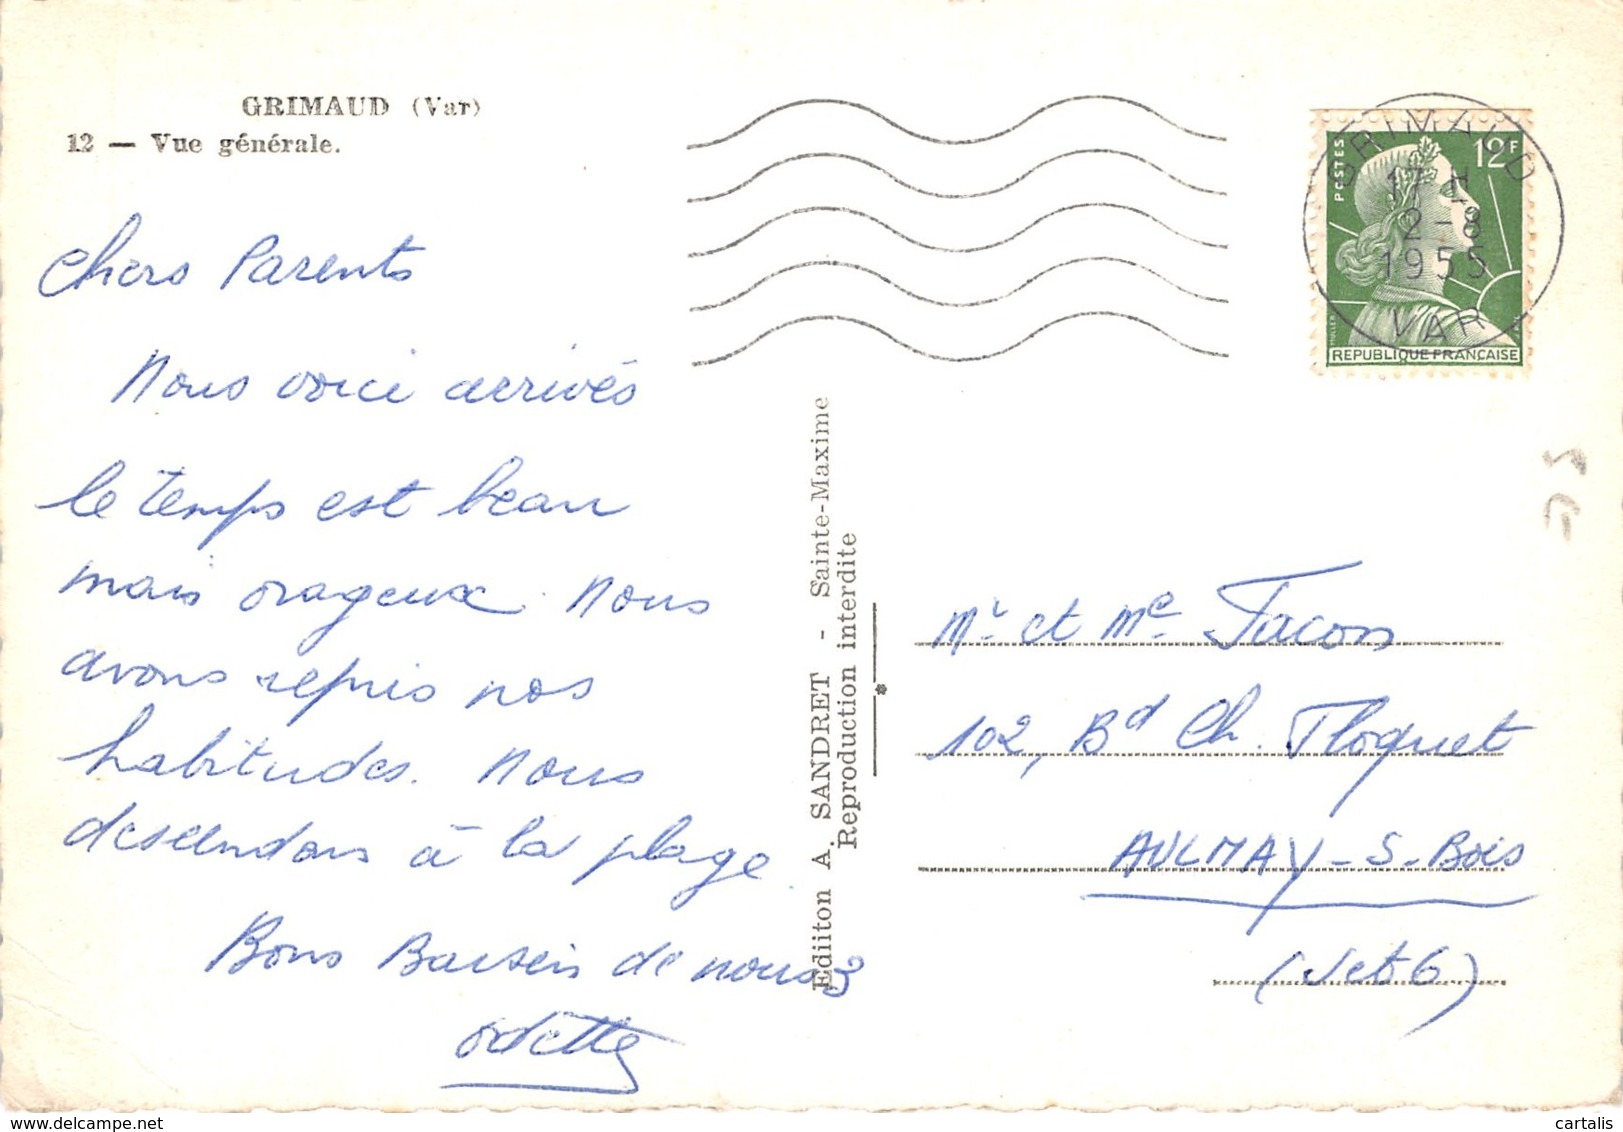 GRIMAUD (Var)
12 — Vue générale.
Chers Parents
Nous voici arrivés
le temps est beau
mais orageux. Nous
avons repris nos
habitudes. Nous
descendons à la plage.
Bons Baisers de nous 3
Odette
Ediiton A. SANDRET - Sainte-Maxime
Reproduction interdite
GRIMAUD
17 H
2 - 8
1955
VAR
POSTES
12F
MULLER
REPUBLIQUE FRANÇAISE
Mr et Me Facon
102, Bd Ch. Floquet
AULNAY-S-Bois
(Set 6)
cartalis